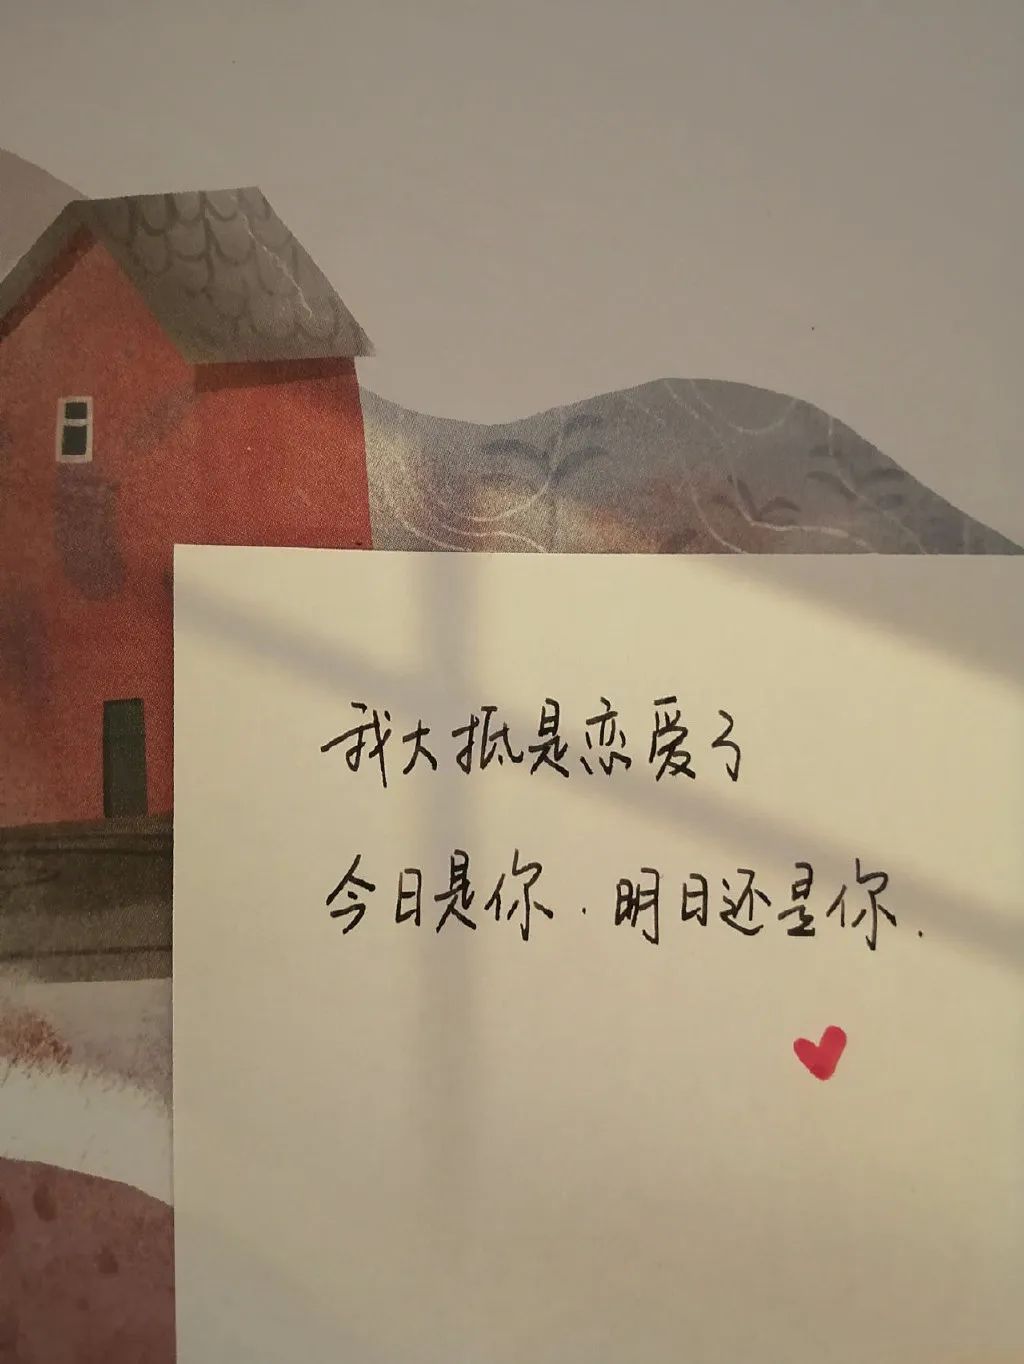 我大抵是恋爱了
今日是你.明日还是你.